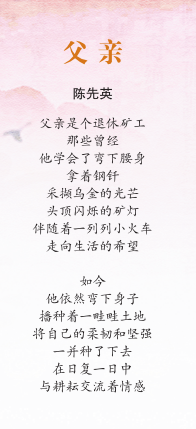 父亲
陈先英
父亲是个退休矿工
那些曾经
他学会了弯下腰身
拿着钢钎
采撷乌金的光芒
头顶闪烁的矿灯
伴随着一列列小火车
走向生活的希望
如今
他依然弯下身子
播种着一畦畦土地
将自己的柔韧和坚强
一并种了下去
在日复一日中
与耕耘交流着情感